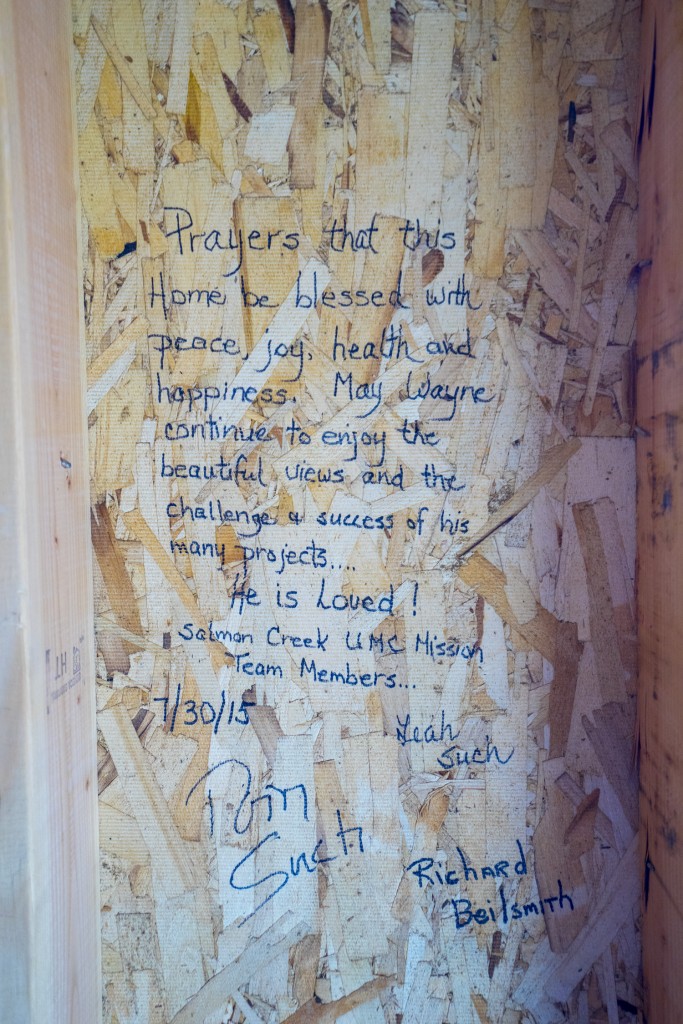 Prayers that this
Home be blessed with
peace, joy, health and
happiness. May Wayne
continue to enjoy the
beautiful views and the
challenge & success of his
many projects....
He is Loved!
Salmon Creek UMC Mission
Team Members...
7/30/15
Leah
Such
Such
Richard
Beilsmith
HT